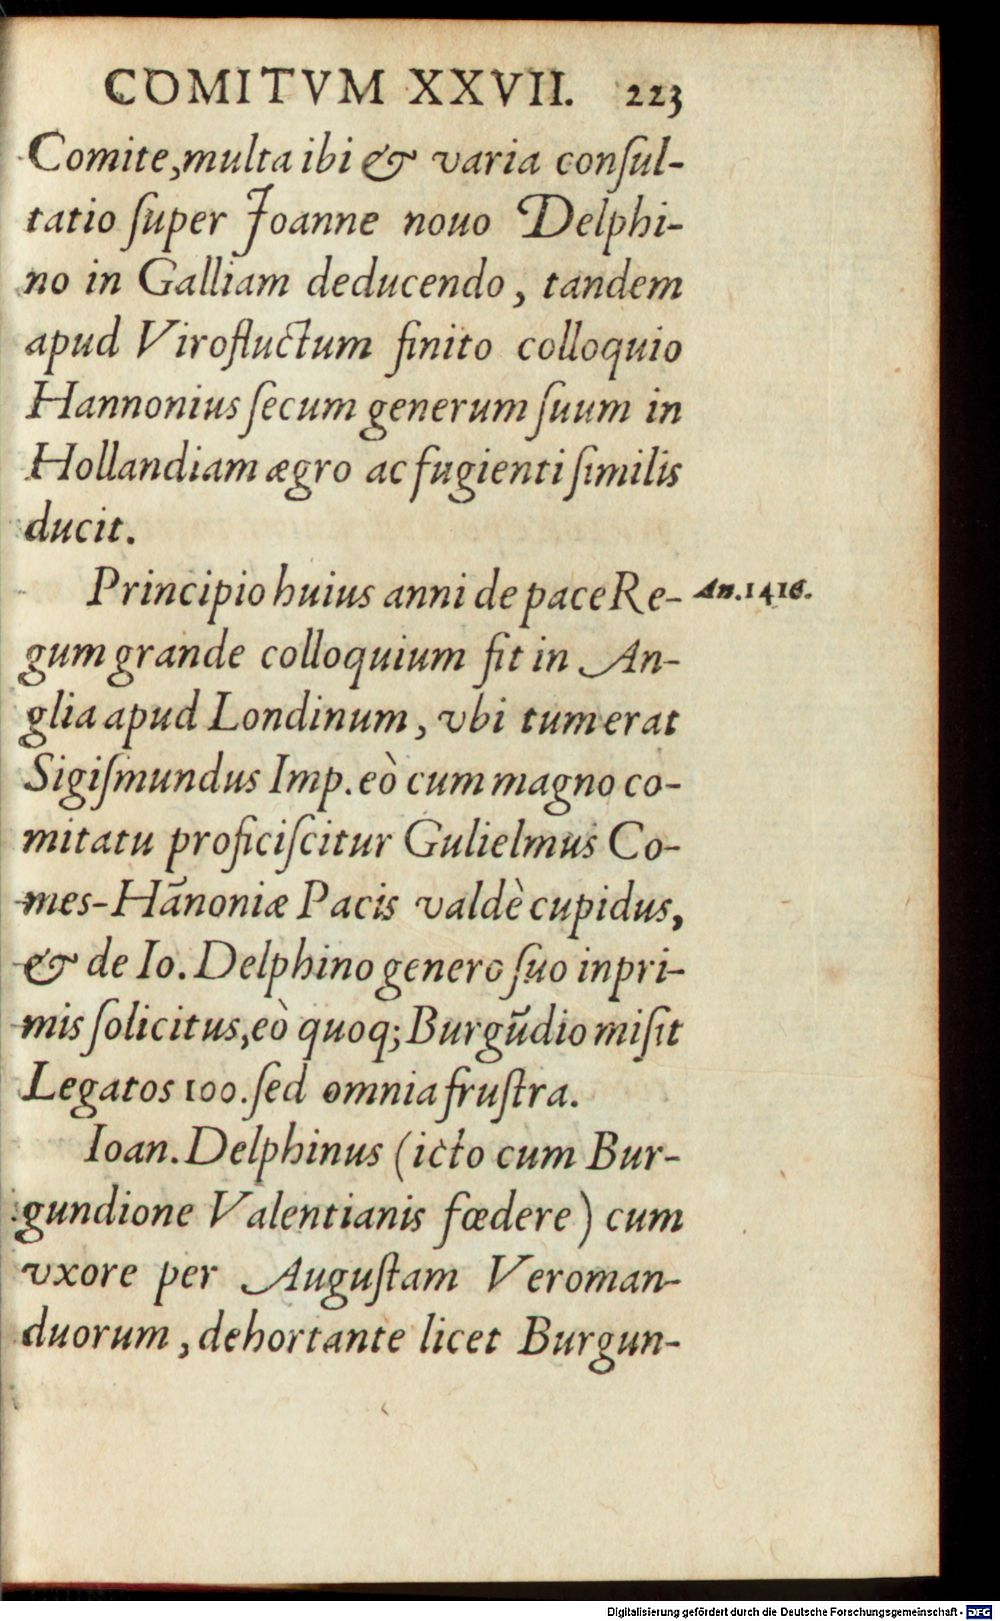 COMITVM XXVII. 223
Comite, multa ibi & varia conſul-
tatio ſuper Joanne nouo Delphi-
no in Galliam deducendo, tandem
apud Virofluctum finito colloquio
Hannonius ſecum generum ſuum in
Hollandiam ægro ac fugienti ſimilis
ducit.
Principio huius anni de pace Re- An. 1416.
gum grande colloquium fit in An-
glia apud Londinum, vbi tum erat
Sigiſmundus Imp. eò cum magno co-
mitatu proficiſcitur Gulielmus Co-
mes-Hãnoniæ Pacis valdè cupidus,
& de Io. Delphino genero ſuo inpri-
mis ſolicitus, eò quoq; Burgũdio miſit
Legatos 100. ſed omnia fruſtra.
Ioan. Delphinus (icto cum Bur-
gundione Valentianis fœdere) cum
vxore per Auguſtam Veroman-
duorum, dehortante licet Burgun-
Digitalisierung gefördert durch die Deutsche Forschungsgemeinschaft - DFG